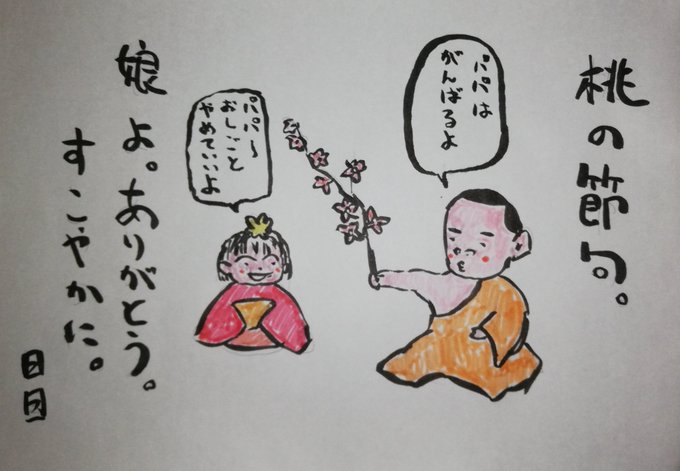 桃の節句。
パパは
がんばるよ
パパ〜
おしごと
やめていいよ
娘よ。ありがとう。
すこやかに。
日日